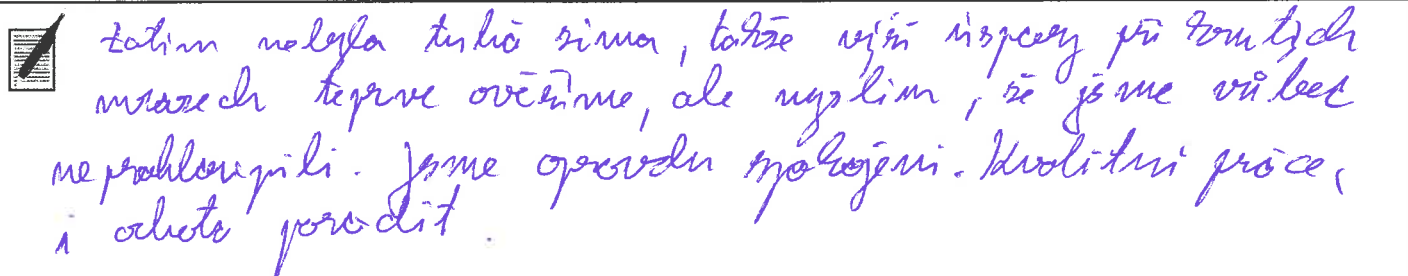 Zatim nebyla tuhá zima, takže výší úspory při krutých
mrazech teprve ověříme, ale myslim, že jsme vůbec
neprohloupili. Jsme opravdu spokojeni. Kvalitní práce,
i ochota poradit.